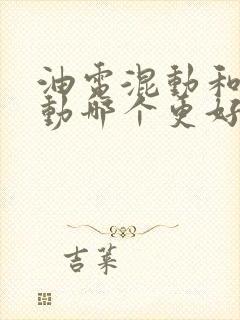 油电混动和
动哪个更好
吉菜